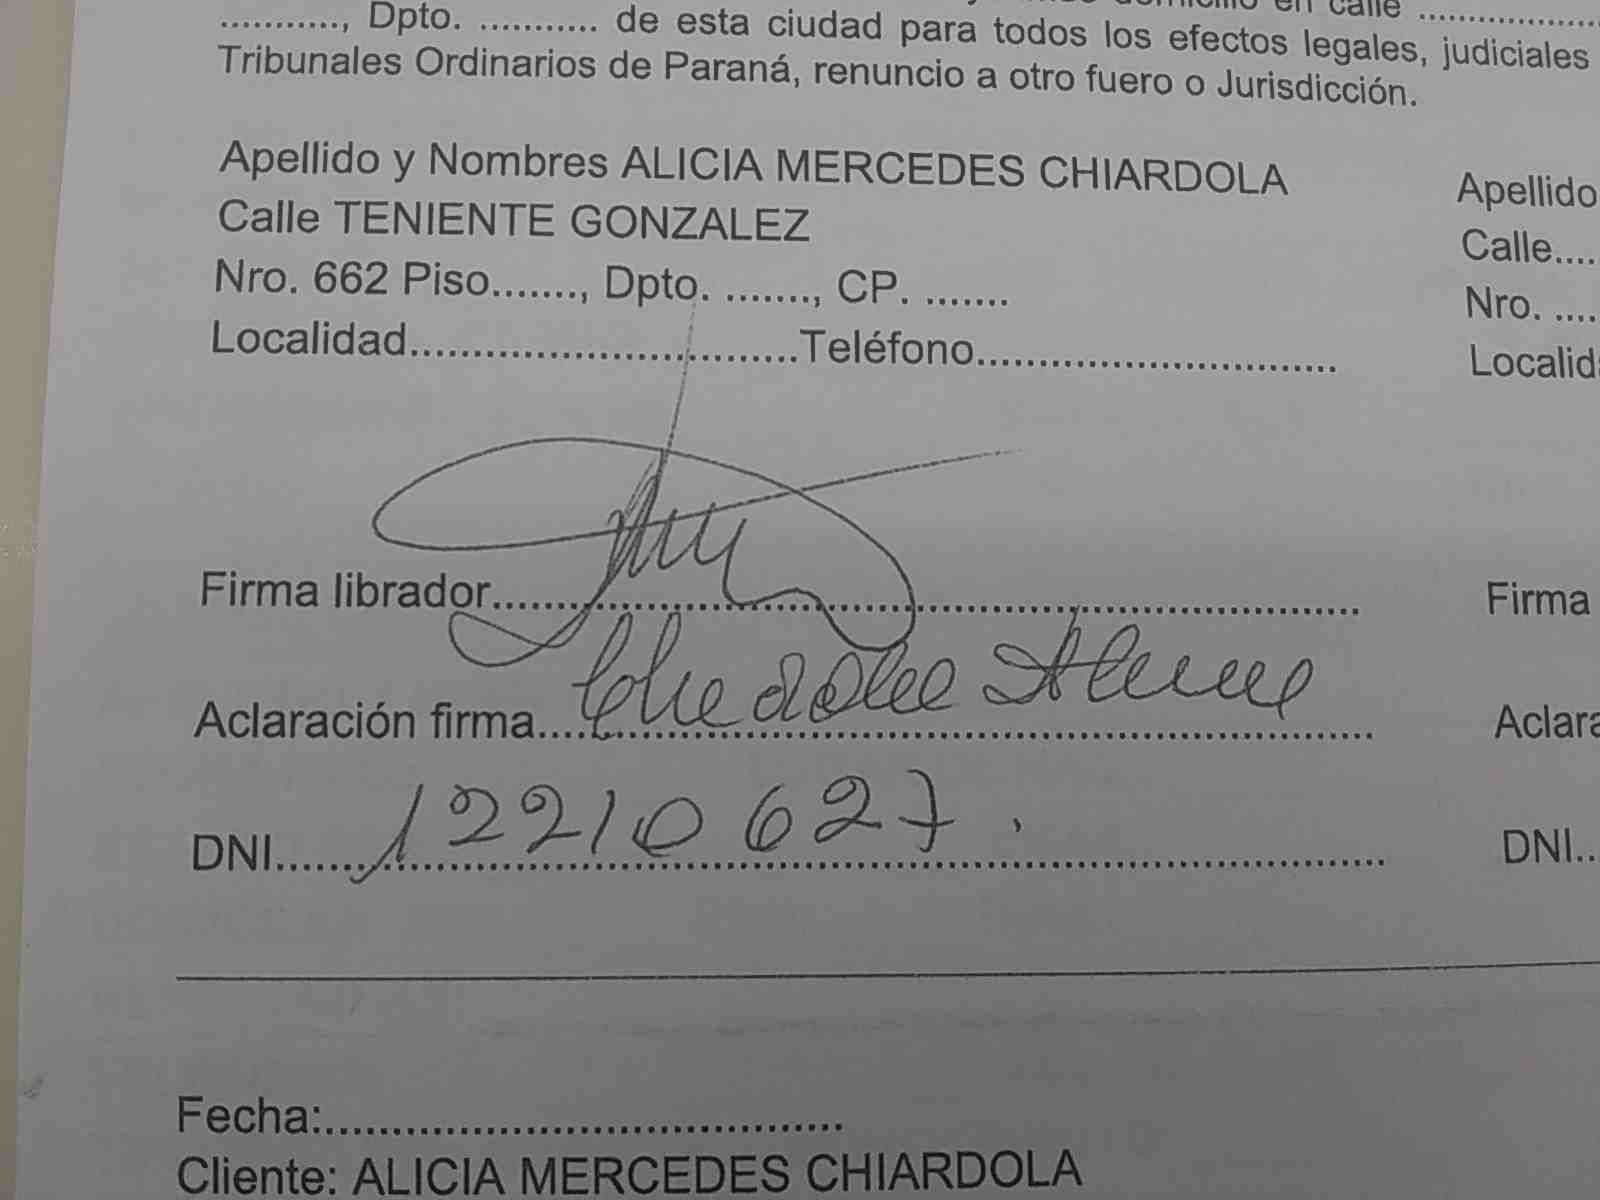 domicilio en calle ....................
..........., Dpto. ........... de esta ciudad para todos los efectos legales, judiciales
Tribunales Ordinarios de Paraná, renuncio a otro fuero o Jurisdicción.
Apellido y Nombres ALICIA MERCEDES CHIARDOLA
Calle TENIENTE GONZALEZ
Nro. 662 Piso......., Dpto. ......., CP. .......
Localidad...............................Teléfono.............................
Firma librador......................................................................
Aclaración firma...................................................................
DNI....... 12210627.
Apellido
Calle....
Nro. ....
Localid
Firma
Aclara
DNI..
Fecha:.........................................
Cliente: ALICIA MERCEDES CHIARDOLA